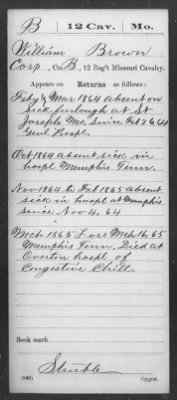 B 12 Cav. Mo.
William Brown
Corp, Co. B, 12 Reg't Missouri Cavalry.
Appears on Returns as follows:
Feby & Mar 1864 absent on
sick furlough at St
Joseph Mo. Since Feb 26 64
Genl Hospl.
Oct 1864 absent sick in
hospl Memphis Tenn.
Nov 1864 to Feb 1865 absent
sick in hospl at Memphis
since Nov 4, 64
Mch 1865 Loss Mch 16, 65
Memphis Tenn. Died at
Overton hospl of
Congestive Chill.
Book mark
(546) Copyist.